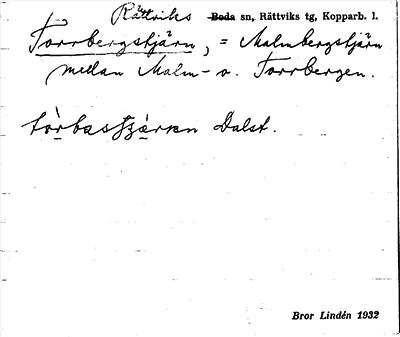 Rättviks Boda sn, Rättviks tg, Kopparb. l.
Torrbergstjärn, = Malmbergstjärn
mellan Malm- o. Torrbergen.
Dalst.
Bror Lindén 1932